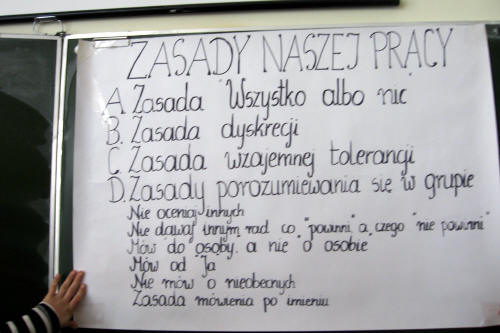 ZASADY NASZEJ PRACY
A. Zasada "Wszystko albo nic
B. Zasada dyskrecji
C. Zasada wzajemnej tolerancji
D. Zasady porozumiewania się w grupie
Nie oceniaj innych
Nie dawaj innym rad co "powinni" a czego "nie powinni"
Mów do osoby a nie o osobie
Mów od "Ja
Nie mów o nieobecnych
Zasada mówienia po imieniu